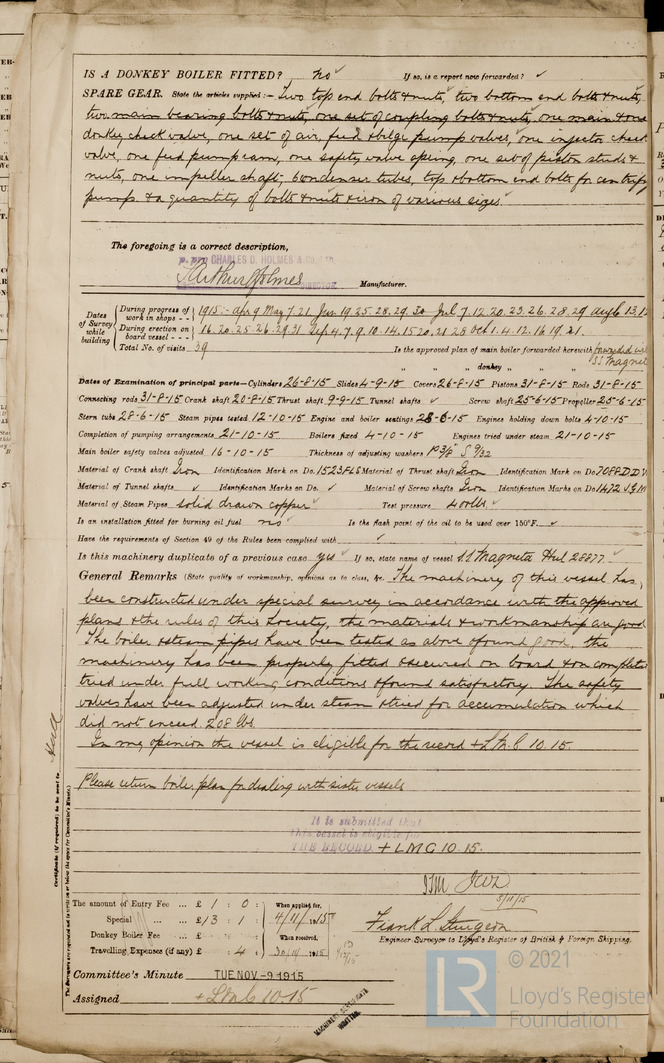 IS A DONKEY BOILER FITTED? no ✓ If so, is a report now forwarded? ✓
SPARE GEAR. State the articles supplied:— Two top end bolts & nuts, two bottom end bolts & nuts,
two main bearing bolts & nuts, one set of coupling bolts & nuts, one main & one
donkey check valve, one set of air, feed & bilge pump valves, one injector check
valve, one feed pump ram, one safety valve spring, one set of piston studs &
nuts, one impeller shaft, 6 condenser tubes, top & bottom end bolts for centrifg
pump & a quantity of bolts & nuts & iron of various sizes.
The foregoing is a correct description,
CHARLES D. HOLMES & Co. Ltd
Arthur Holmes DIRECTOR Manufacturer.
Dates of Survey while building
During progress of work in shops - - 1915:- Apr 9 May 7. 21. Jun 19. 25. 28. 29. 30 Jul 7. 12. 20. 23. 26. 28. 29 Augt 13. 1
During erection on board vessel - - - 16. 20. 25. 26. 29. 31. Sept 4. 7. 9. 10. 14. 15 20. 21 28 Oct 1. 4. 12. 16 19. 21.
Total No. of visits 39 Is the approved plan of main boiler forwarded herewith forwarded with
" " " donkey " " " SS Magneta
Dates of Examination of principal parts—Cylinders 26-8-15 Slides 4-9-15 Covers 26-8-15 Pistons 31-8-15 Rods 31-8-15
Connecting rods 31-8-15 Crank shaft 20-8-15 Thrust shaft 9-9-15 Tunnel shafts ✓ Screw shaft 25-6-15 Propeller 25-6-15
Stern tube 28-6-15 Steam pipes tested 12-10-15 Engine and boiler seatings 28-6-15 Engines holding down bolts 4-10-15
Completion of pumping arrangements 21-10-15 Boilers fixed 4-10-15 Engines tried under steam 21-10-15
Main boiler safety valves adjusted 16-10-15 Thickness of adjusting washers P 3/8" S 9/32
Material of Crank shaft Iron Identification Mark on Do. 1523FLS Material of Thrust shaft Iron Identification Mark on Do 7088DD
Material of Tunnel shafts ✓ Identification Marks on Do. ✓ Material of Screw shafts Iron Identification Marks on Do 1472
Material of Steam Pipes solid drawn copper Test pressure 400 lbs.
Is an installation fitted for burning oil fuel no Is the flash point of the oil to be used over 150°F. ✓
Have the requirements of Section 49 of the Rules been complied with ✓
Is this machinery duplicate of a previous case yes If so, state name of vessel S.S. Magneta Hul 28877
General Remarks (State quality of workmanship, opinions as to class, &c. The machinery of this vessel has
been constructed under special survey in accordance with the approved
plans & the rules of this Society, the materials & workmanship are good
The boiler & steam pipes have been tested as above & found good, the
machinery has been properly fitted & secured on board & on completion
tried under full working conditions & found satisfactory. The safety
valves have been adjusted under steam & tried for accumulation which
did not exceed 208 lbs.
In my opinion the vessel is eligible for the record + L.M.C 10. 15.
Please return boiler plan for dealing with sister vessels
It is submitted that
this vessel is eligible for
THE RECORD. + LMC 10.15.
5/11/15
Hull
Certificate (if required) to be sent to
(The Surveyors are requested not to write on or below the space for Committee's Minute.)
The amount of Entry Fee ... £ 1 : 0 : When applied for,
Special ... £ 13 : 1 : 4/11/1915
Donkey Boiler Fee ... £ When received,
Travelling Expenses (if any) £ : 4 : 30/11/1915
Frank L. Sturgeon
Engineer Surveyor to Lloyd's Register of British & Foreign Shipping.
Committee's Minute TUE NOV -9 1915
Assigned + L M C 10.15
MACHINERY CERTIFICATE WRITTEN.
© 2021
LR Lloyd's Register Foundation